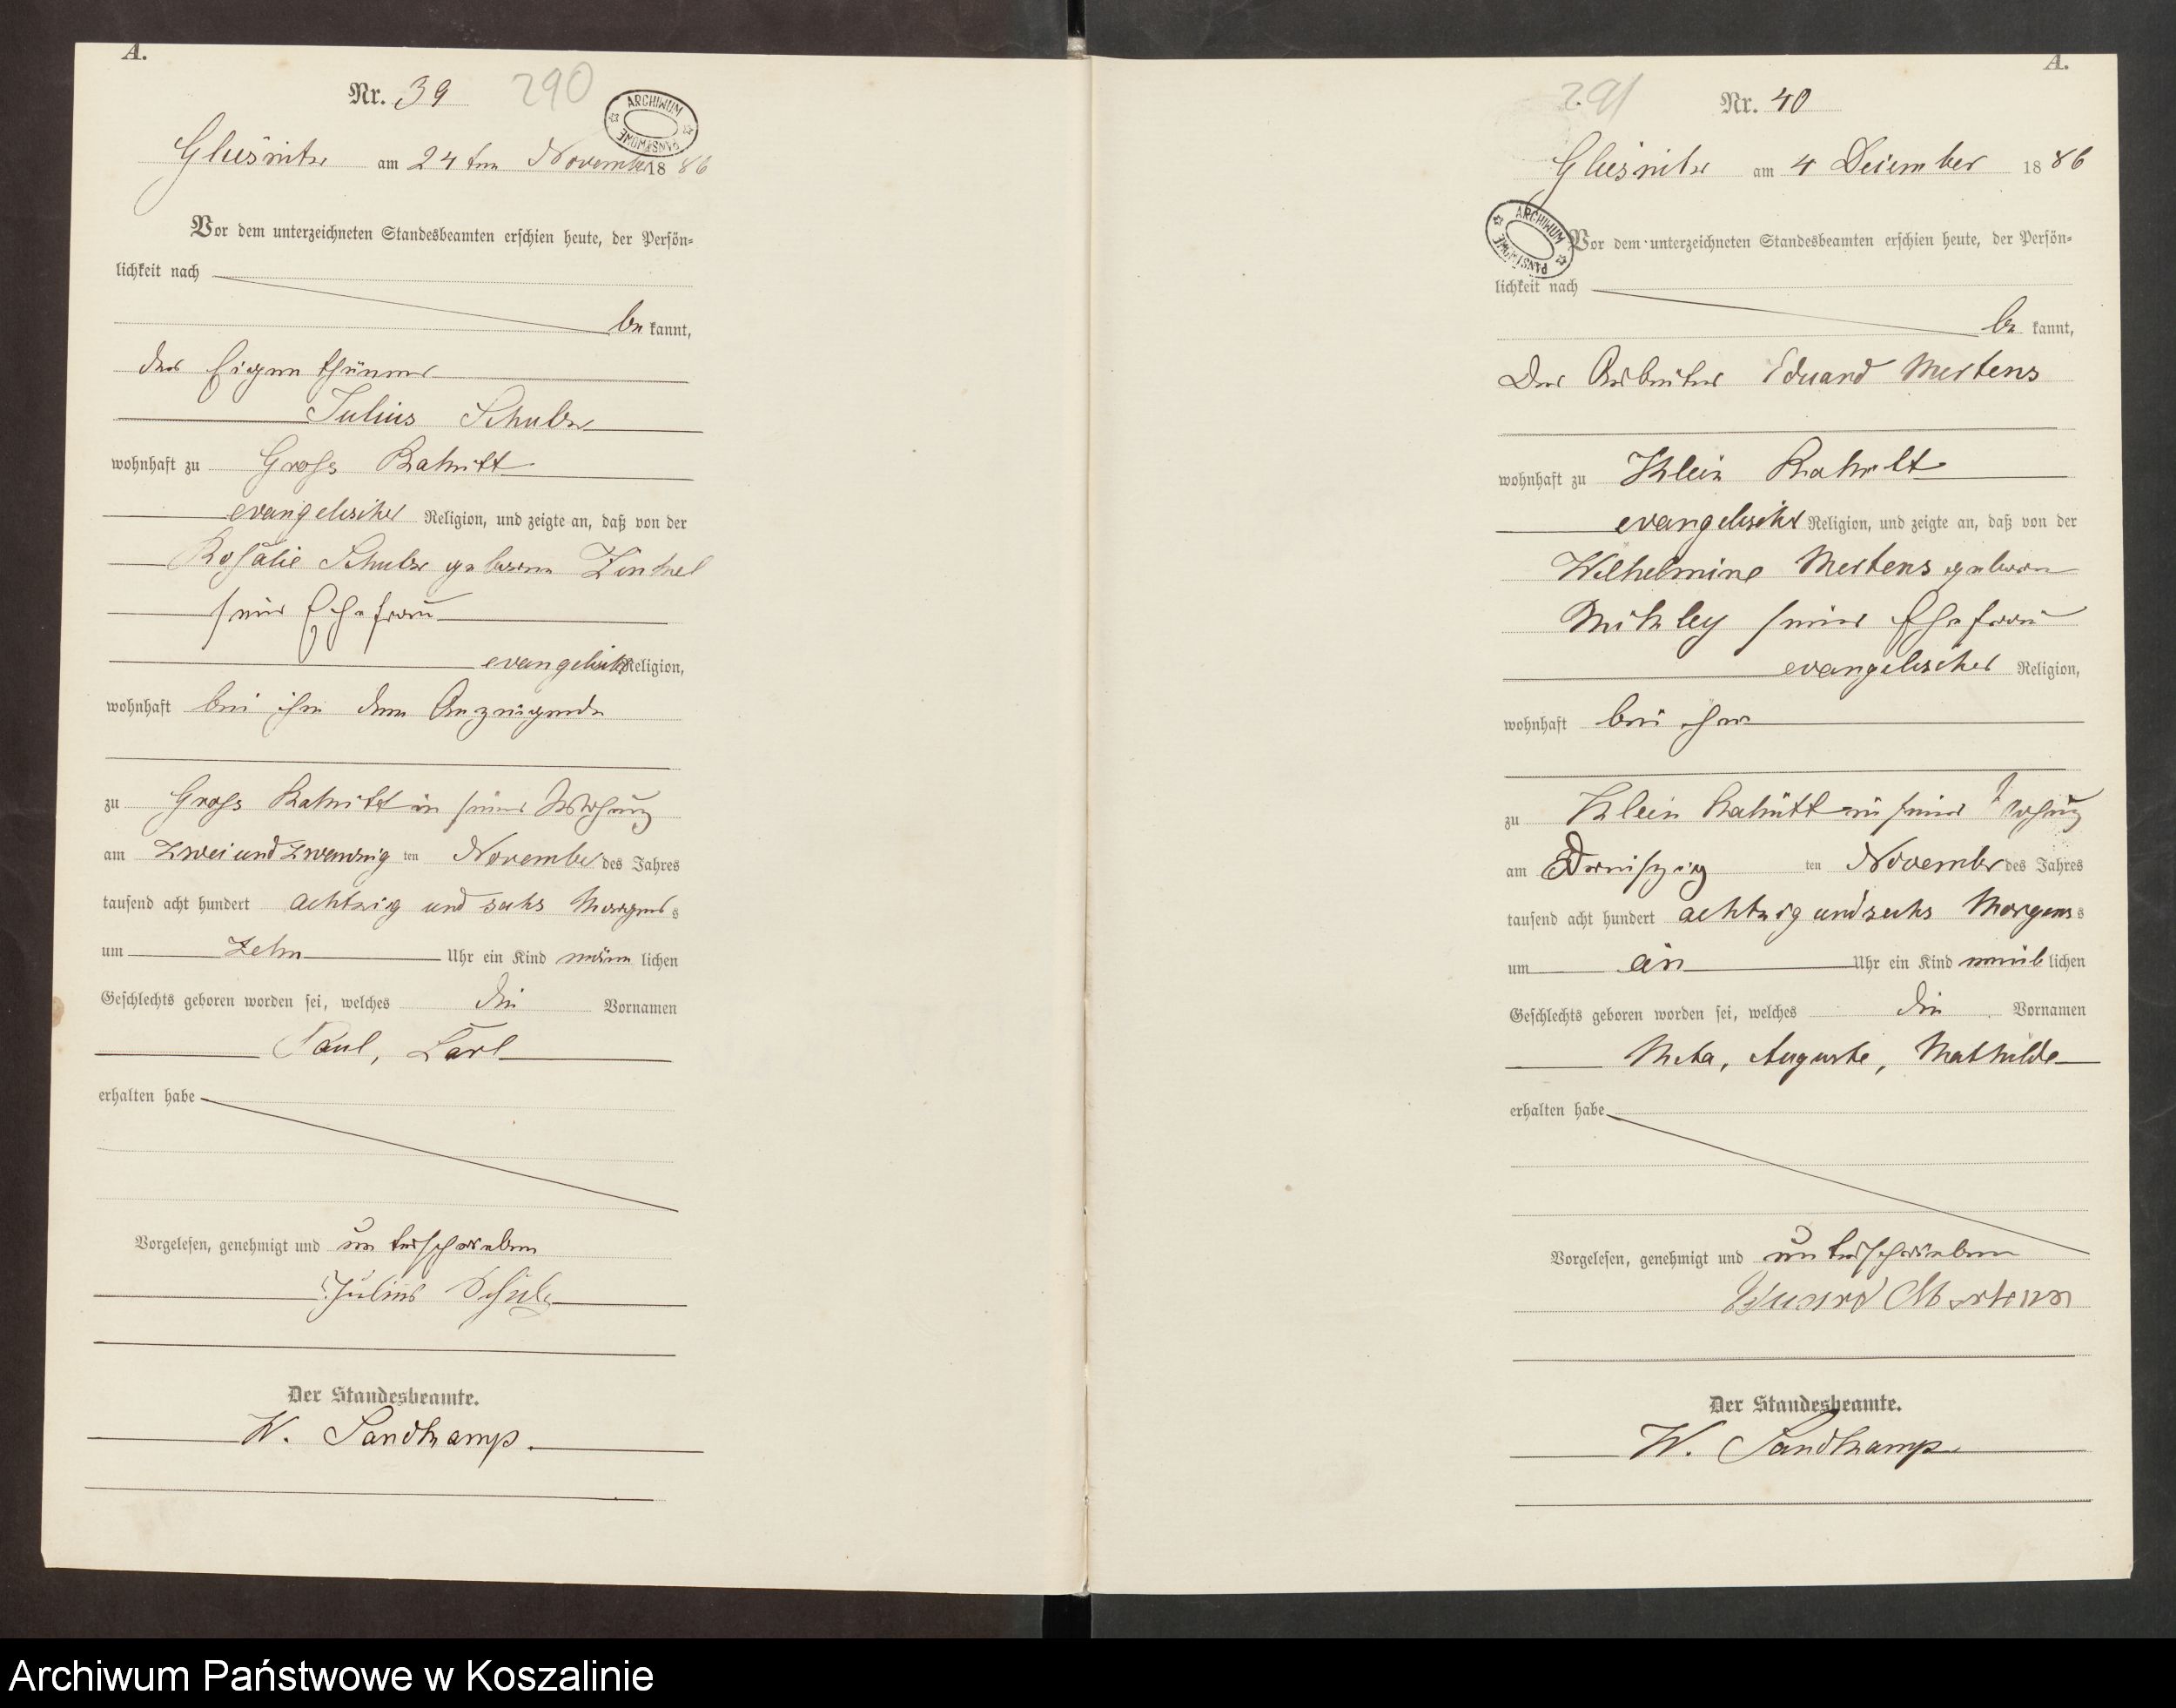 A.
Nr. 39 290
ARCHIWUM PAŃSTWOWE
Gluschnitz am 24 ten November 18 86
Vor dem unterzeichneten Standesbeamten erschien heute, der Persön-
lichkeit nach
be kannt,
der Eigenthümer
Julius Schulz
wohnhaft zu Gross Rakitt
evangelischer Religion, und zeigte an, daß von der
Rosalie Schulz geborne
seiner Ehefrau
evangelischer Religion,
wohnhaft bei ihm dem Anzeigende
zu Gross Rakitt in seiner Wohnung
am zwei und zwanzig ten November des Jahres
tausend acht hundert achtzig und sechs Morgens s
um Zehn Uhr ein Kind männ lichen
Geschlechts geboren worden sei, welches die Vornamen
Paul, Carl
erhalten habe
Vorgelesen, genehmigt und unterschrieben
Julius Schulz
Der Standesbeamte.
W. Sandkamp.
A.
291 Nr. 40
Gluschnitz am 4 Dezember 18 86
ARCHIWUM PAŃSTWOWE
Vor dem unterzeichneten Standesbeamten erschien heute, der Persön-
lichkeit nach
be kannt,
Der Arbeiter Eduard Mertens
wohnhaft zu Klein Rakitt
evangelischer Religion, und zeigte an, daß von der
Wilhelmine Mertens geboren
seiner Ehefrau
evangelischer Religion,
wohnhaft bei ihm
zu Klein Rakitt in seiner Wohnung
am Dreiszig ten November des Jahres
tausend acht hundert achtzig und sechs Morgens s
um ein Uhr ein Kind weib lichen
Geschlechts geboren worden sei, welches die Vornamen
Meta, Auguste, Mathilde
erhalten habe
Vorgelesen, genehmigt und unterschrieben
Eduard Mertens
Der Standesbeamte.
W. Sandkamp.
Archiwum Państwowe w Koszalinie